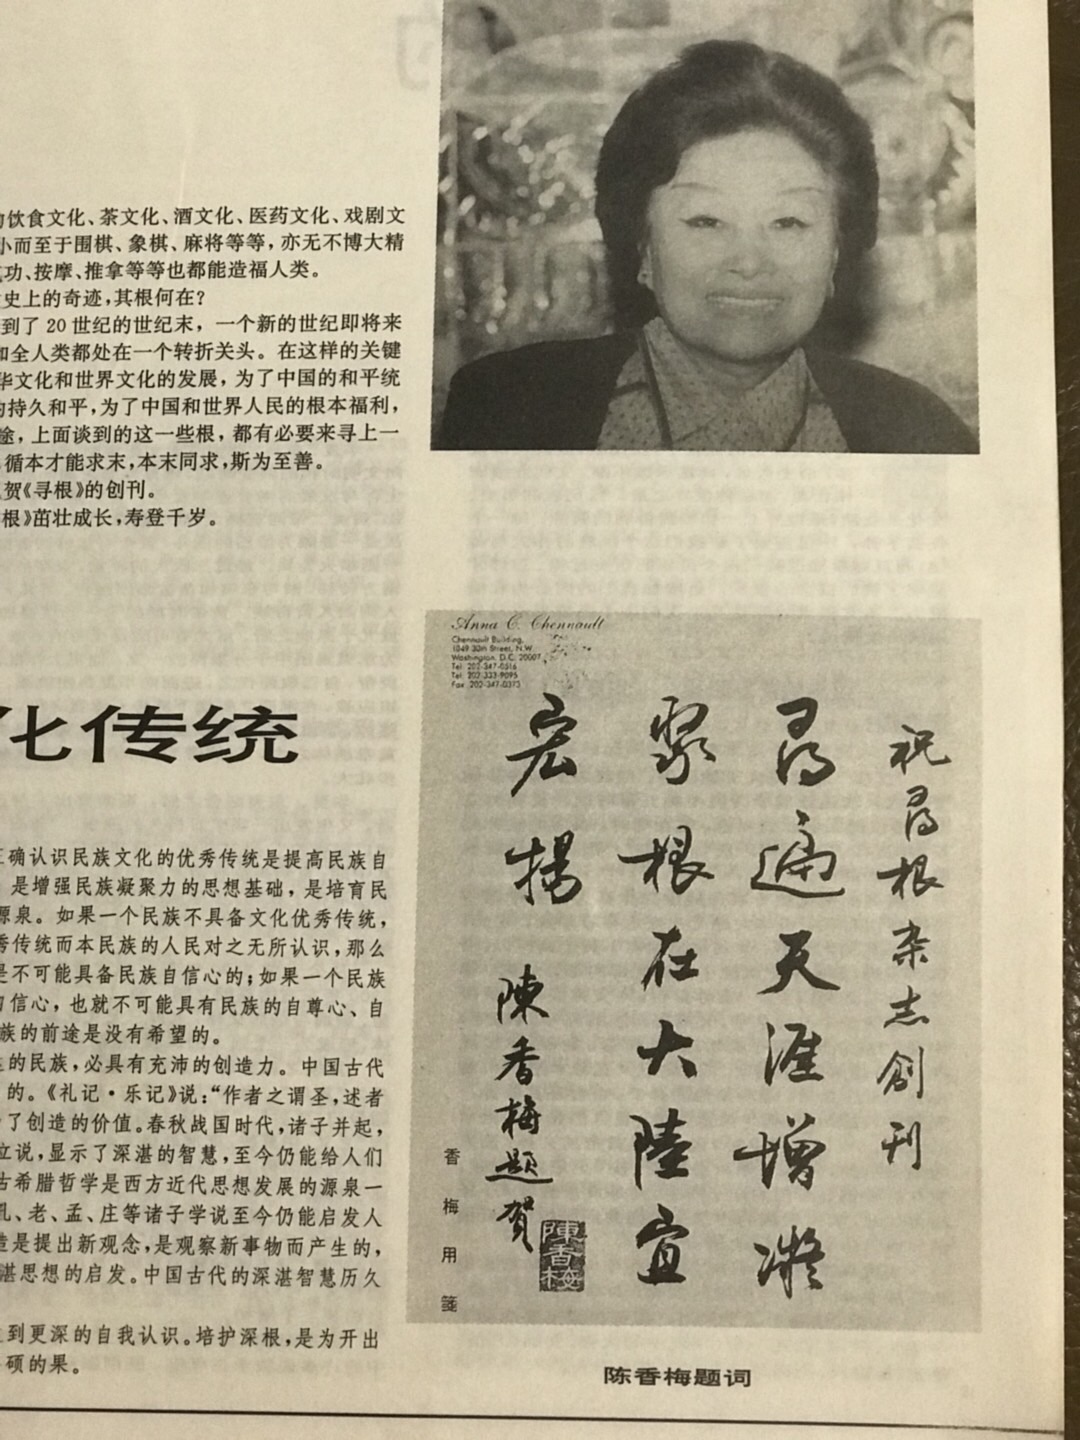 饮食文化、茶文化、酒文化、医药文化、戏剧文
小而至于围棋、象棋、麻将等等，亦无不博大精
功、按摩、推拿等等也都能造福人类。
史上的奇迹，其根何在？
到了20世纪的世纪末，一个新的世纪即将来
和全人类都处在一个转折关头。在这样的关键
华文化和世界文化的发展，为了中国的和平统
持久和平，为了中国和世界人民的根本福利，
途，上面谈到的这一些根，都有必要来寻上一
循本才能求末，本末同求，斯为至善。
贺《寻根》的创刊。
根》茁壮成长，寿登千岁。
化传统
正确认识民族文化的优秀传统是提高民族自
是增强民族凝聚力的思想基础，是培育民
源泉。如果一个民族不具备文化优秀传统，
秀传统而本民族的人民对之无所认识，那么
是不可能具备民族自信心的；如果一个民族
信心，也就不可能具有民族的自尊心、自
族的前途是没有希望的。
的民族，必具有充沛的创造力。中国古代
的。《礼记·乐记》说：“作者之谓圣，述者
了创造的价值。春秋战国时代，诸子并起，
立说，显示了深湛的智慧，至今仍能给人们
古希腊哲学是西方近代思想发展的源泉一
孔、老、孟、庄等诸子学说至今仍能启发人
造是提出新观念，是观察新事物而产生的，
湛思想的启发。中国古代的深湛智慧历久
到更深的自我认识。培护深根，是为开出
硕的果。
Anna C. Chennault
Chennault Building,
1049 30th Street, N.W.
Washington, D.C. 20007
Tel: 202-347-0516
Tel: 202-333-9095
Fax: 202-347-0373
祝尋根杂志創刊
尋遍天涯增凝
聚根在大陸宜
宏揚
陳香梅题賀
陳香梅
香梅用箋
陈香梅题词